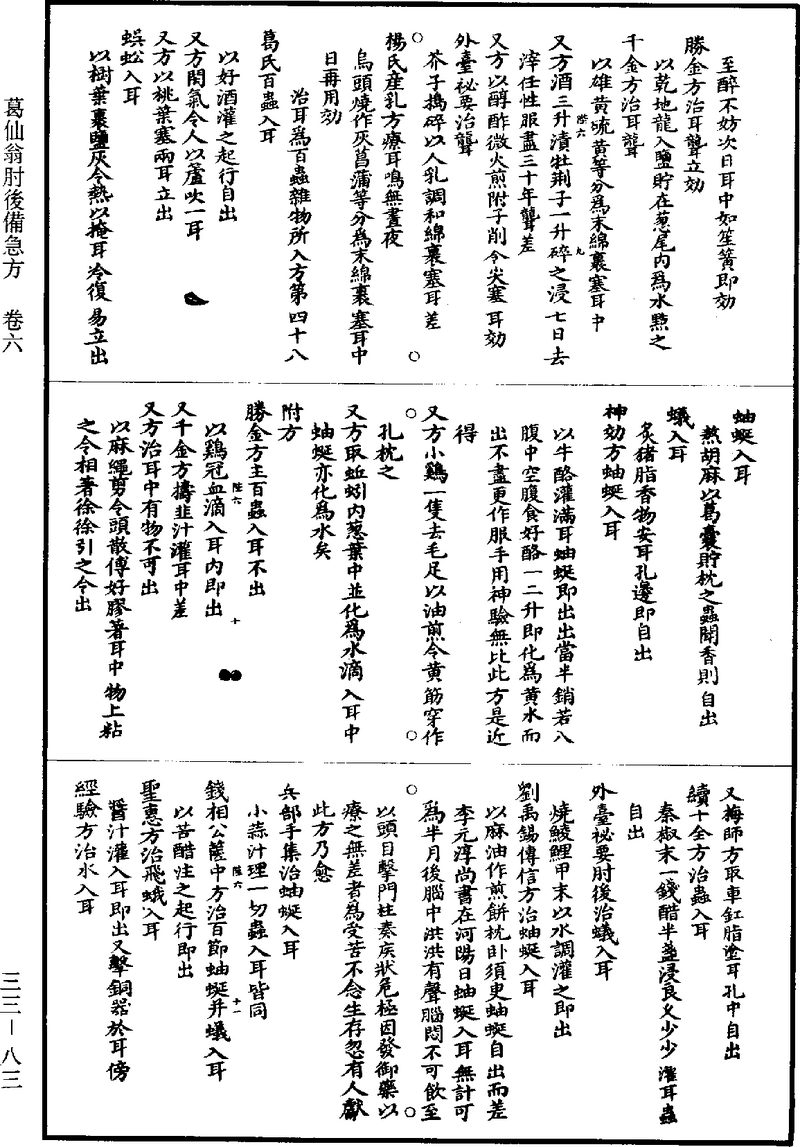 葛仙翁肘後備急方　卷六
至醉不妨次日耳中如笙簧即効
勝金方治耳聾立効
以乾地龍入鹽貯在葱尾內為水點之
千金方治耳聾
以雄黃硫黃等分為末綿裹塞耳中
又方酒三升漬牡荊子一升碎之浸七日去
陞六
九
滓任性服盡三十年聾差
又方以醇酢微火煎附子削令尖塞耳効
外臺祕要治聾
芥子搗碎以人乳調和綿裹塞耳差
楊氏產乳方療耳鳴無晝夜
烏頭燒作灰菖蒲等分為末綿裹塞耳中
日再用効
治耳為百蟲雜物所入方第四十八
葛氏百蟲入耳
以好酒灌之起行自出
又方閉氣令人以蘆吹一耳
又方以桃葉塞兩耳立出
蜈蚣入耳
以樹葉裹鹽灰令熱以掩耳冷復易立出
蚰蜒入耳
熬胡麻以葛囊貯枕之蟲聞香則自出
蟻入耳
炙豬脂香物安耳孔邊即自出
神効方蚰蜒入耳
以牛酪灌滿耳蚰蜒即出出當半銷若入
腹中空腹食好酪一二升即化為黃水而
出不盡更作服手用神驗無比此方是近
得
又方小鷄一隻去毛足以油煎令黃筋穿作
孔枕之
又方取蚯蚓內葱葉中並化為水滴入耳中
蚰蜒亦化為水矣
附方
勝金方主百蟲入耳不出
以鷄冠血滴入耳內即出
陞六
十
又千金方擣韭汁灌耳中差
又方治耳中有物不可出
以麻繩剪令頭散傅好膠著耳中物上粘
之令相著徐徐引之令出
又梅師方取車釭脂塗耳孔中自出
續十全方治蟲入耳
秦椒末一錢醋半盞浸良久少少灌耳蟲
自出
外臺祕要肘後治蟻入耳
燒鯪鯉甲末以水調灌之即出
劉禹錫傳信方治蚰蜒入耳
以麻油作煎餅枕卧須臾蚰蜒自出而差
李元淳尚書在河陽日蚰蜒入耳無計可
為半月後腦中洪洪有聲腦悶不可飲至
以頭自擊門柱奏疾狀危極因發御藥以
療之無差者為受苦不念生存忽有人獻
此方乃愈
兵部手集治蚰蜒入耳
小蒜汁理一切蟲入耳皆同
錢相公篋中方治百節蚰蜒并蟻入耳
陞六
十一
以苦醋注之起行即出
聖惠方治飛蛾入耳
醬汁灌入耳即出又擊銅器於耳傍
經驗方治水入耳
三三－八三